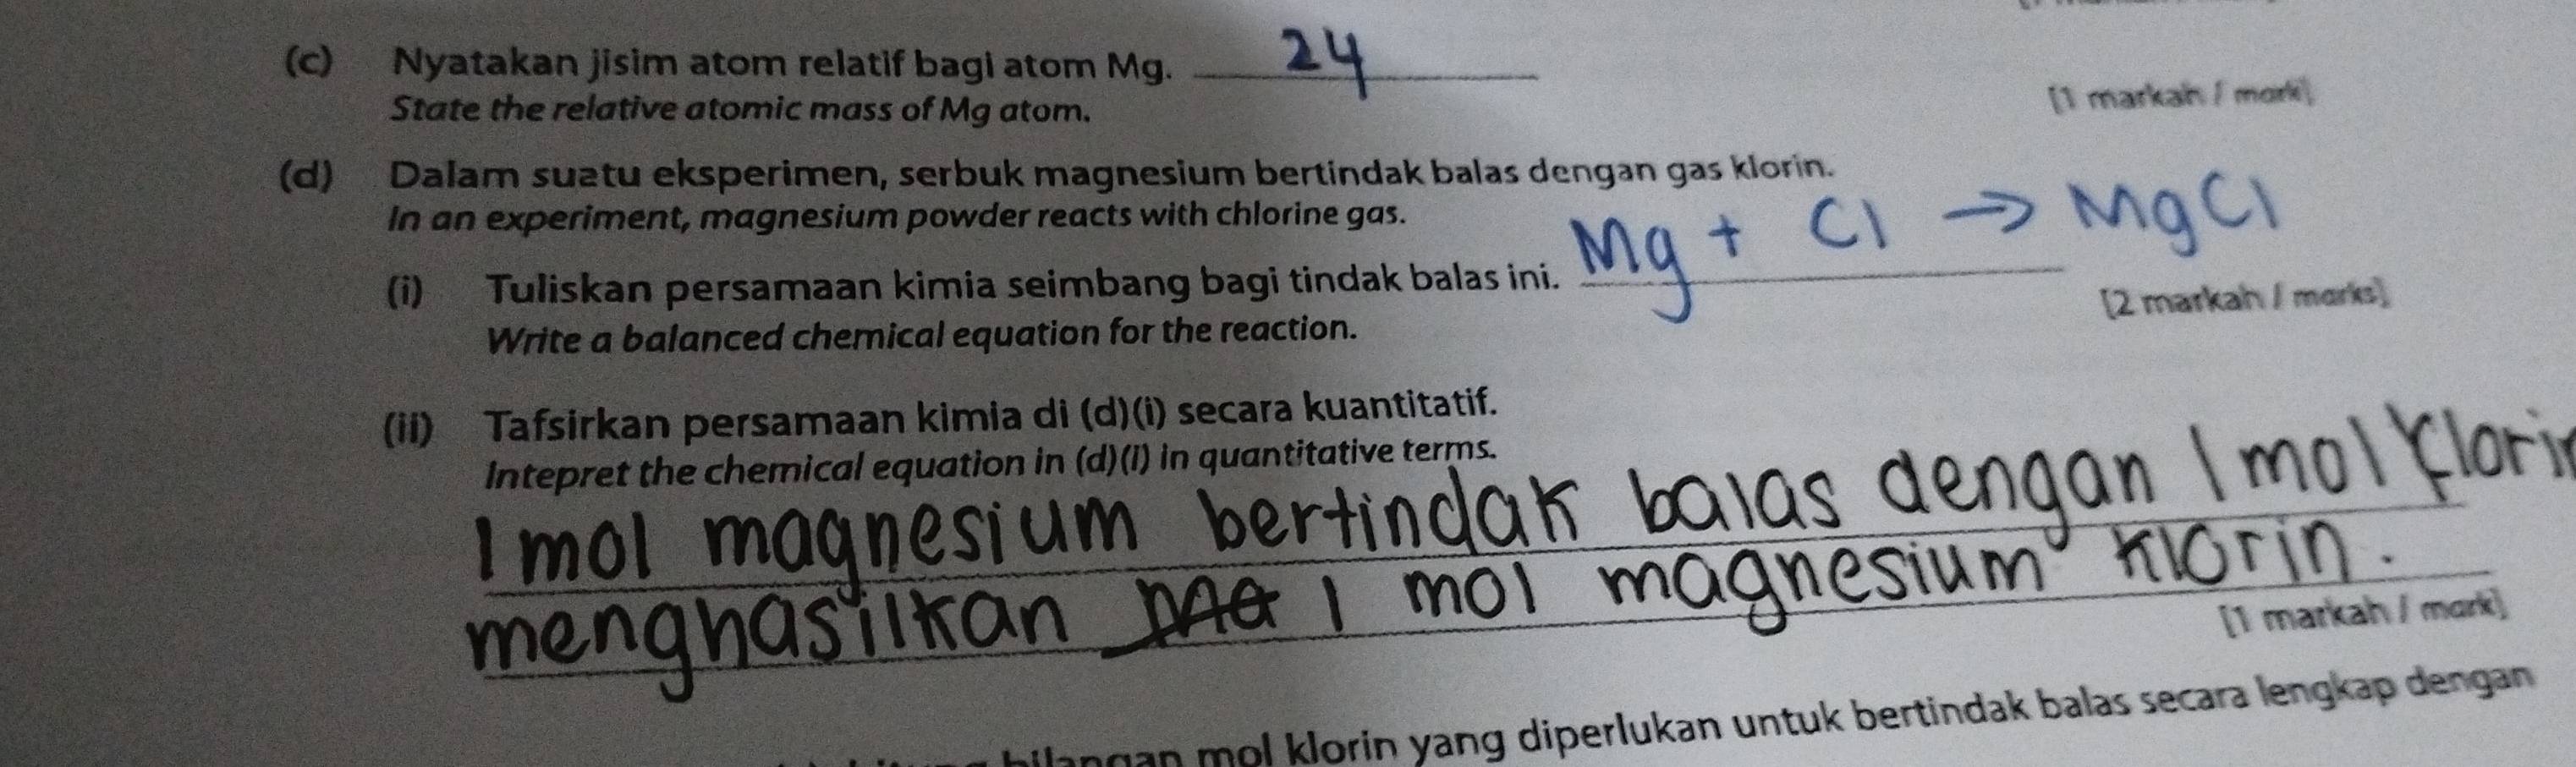 (c) Nyatakan jisim atom relatif bagi atom Mg. 24
State the relative atomic mass of Mg atom.
[1 markah / mark]
(d) Dalam suatu eksperimen, serbuk magnesium bertindak balas dengan gas klorin.
In an experiment, magnesium powder reacts with chlorine gas.
(i) Tuliskan persamaan kimia seimbang bagi tindak balas ini. Mg + Cl → MgCl
Write a balanced chemical equation for the reaction.
[2 markah / marks]
(ii) Tafsirkan persamaan kimia di (d)(i) secara kuantitatif.
Intepret the chemical equation in (d)(i) in quantitative terms.
1 mol magnesium bertindak balas dengan 1 mol klorin
menghasilkan 1 mol magnesium klorin.
[1 markah / mark]
bilangan mol klorin yang diperlukan untuk bertindak balas secara lengkap dengan